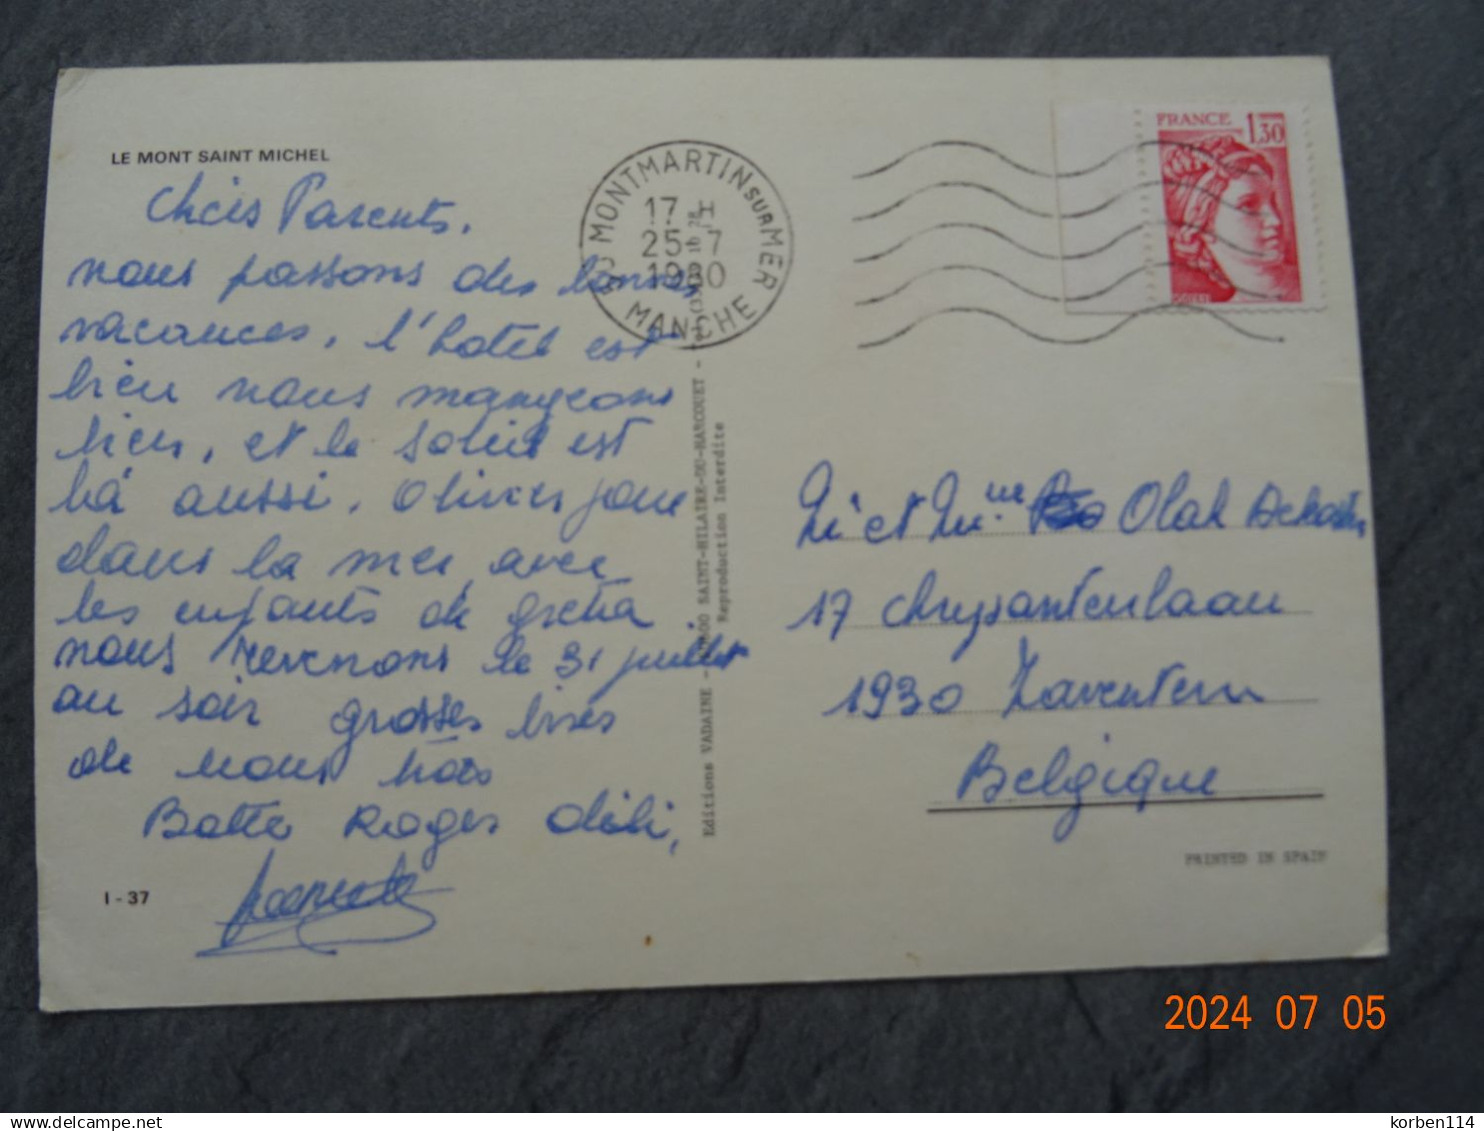 LE MONT SAINT MICHEL
Chers Parents,
nous passons des bonnes
vacances, l'hotel est
bien nous mangeons
bien, et le soleil est
là aussi, Olivier joue
dans la mer avec
les enfants de greta
nous revenons le 31 juillet
au soir grosses bises
de nous trois
Roger didi,
I - 37
50 MONTMARTIN SUR MER
17 H
25-7
1980
MANCHE
FRANCE 1,30
Editions VADAINE - SAINT-HILAIRE-DU-HARCOUET -
Reproduction Interdite
Mr et Mme Olah
17 chrysantenlaan
1930 Zaventem
Belgique
PRINTED IN SPAIN
2024 07 05
delcampe.net
korben114